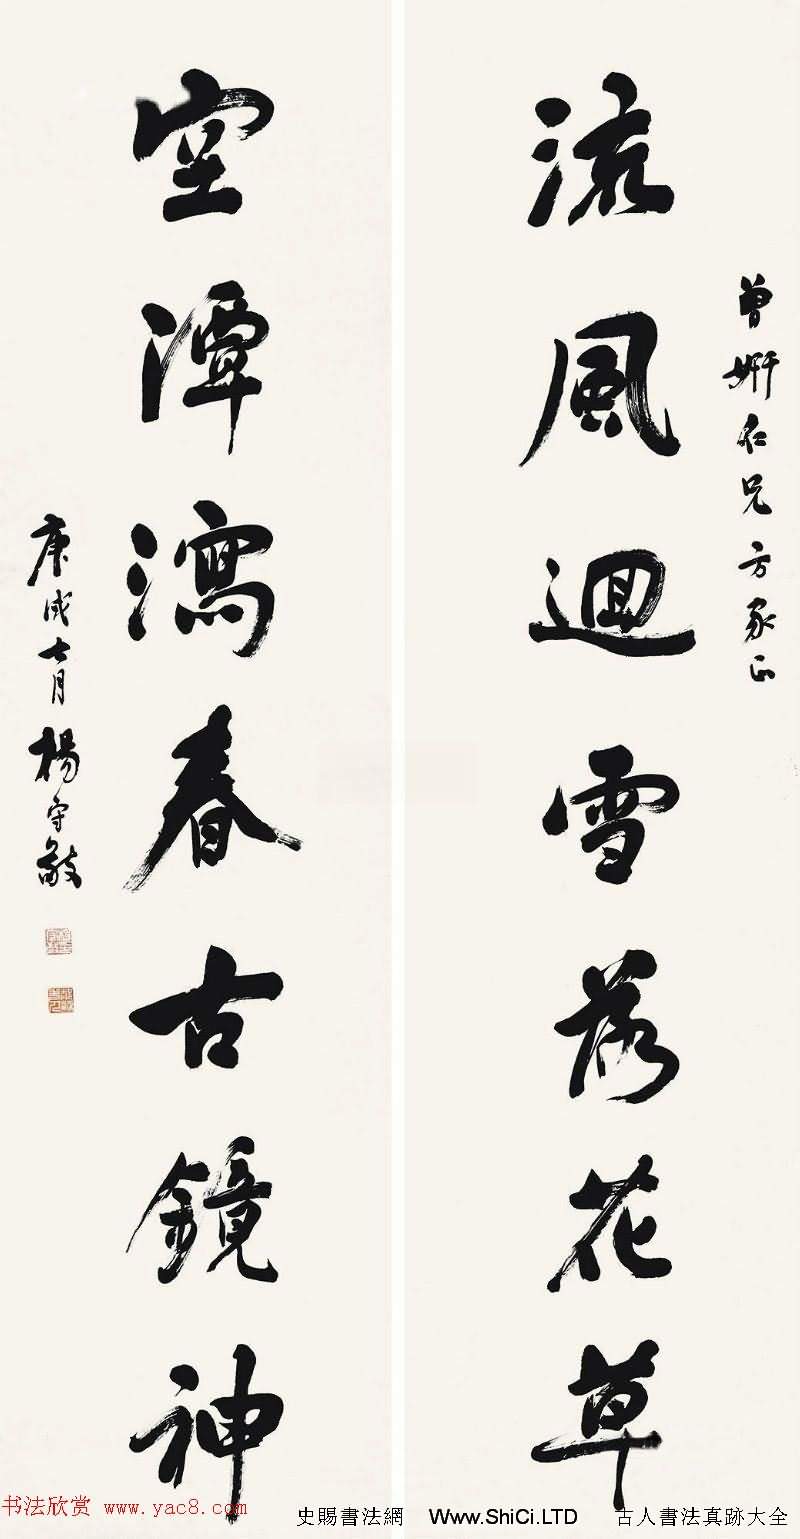 曾姸仁兄方家正
流風迴雪落花草
空潭瀉春古鏡神
庚戌七月楊守敬
书法欣赏 www.yac8.com
史賜書法網 Www.ShiCi.LTD 古人書法真跡大全